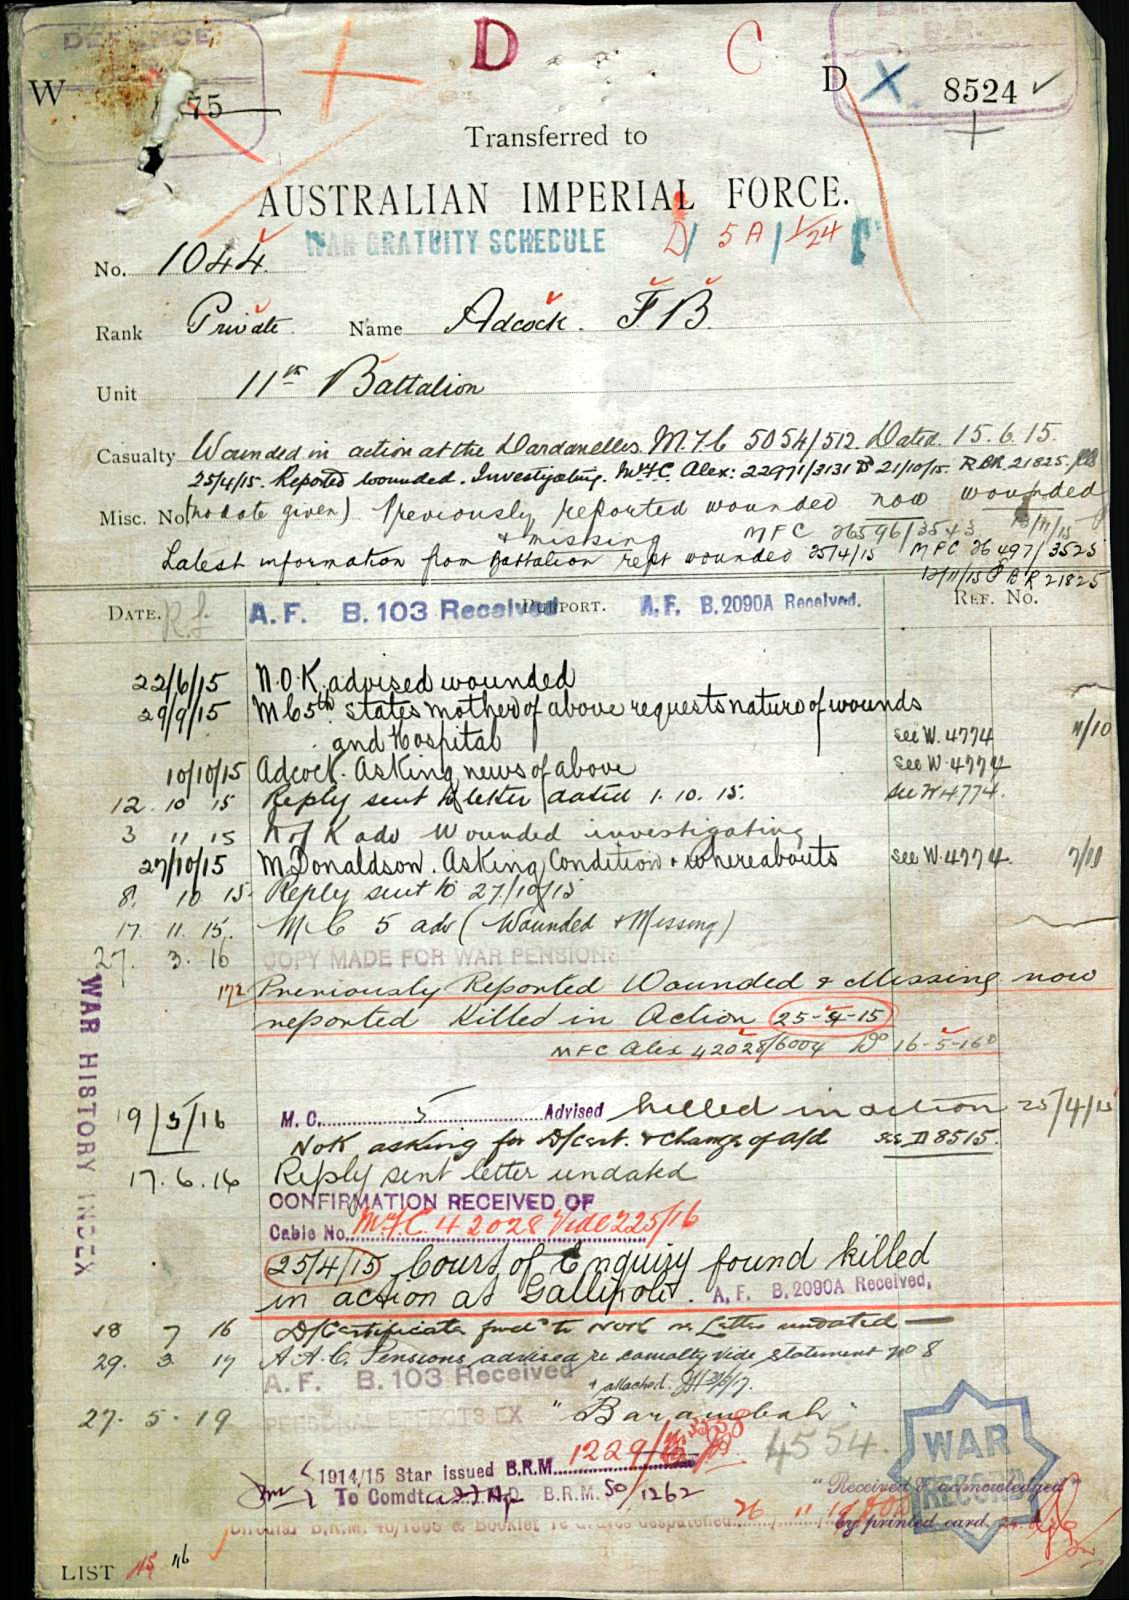 DEFENCE
D C
W 75 D X 8524
Transferred to
AUSTRALIAN IMPERIAL FORCE.
WAR GRATUITY SCHEDULE D/ 5A/ 1/24
No. 1044
Rank Private Name Adcock. F B.
Unit 11th Battalion
Casualty Wounded in action at the Dardanelles. M.F.C 5054/512. Dated. 15.6.15.
25/4/15. Reported wounded. Investigating. M.F.C. Alex: 22971/3131 D 21/10/15. RBR 21825.
Misc. No (no date given) Previously reported wounded now wounded
& missing MFC 36596/3543 13/11/15
Latest information from Battalion rept wounded 25/4/15 MFC 36497/3525
12/11/15 BR 21825
DATE. A.F. B.103 Received REPORT. A.F. B.2090A Received. REF. NO.
22/6/15 N.O.K. advised wounded
29/9/15 M C 5th. States mother of above requests nature of wounds
and Hospital see W.4774 11/10
10/10/15 Adcock. Asking news of above see W.4774
12 10 15 Reply sent to letter dated 1.10.15. see W 4774.
3 11 15 N of K adv Wounded investigating
27/10/15 M Donaldson. Asking Condition & whereabouts see W.4774. 7/11
8. 10 15 Reply sent to 27/10/15
17. 11. 15. M C 5 adv (Wounded & Missing)
27. 3. 16 COPY MADE FOR WAR PENSIONS
172 Previously Reported Wounded & Missing now
reported Killed in Action 25-4-15
MFC Alex 42028/6004 Do 16-5-16
19/5/16 M.C. 5 Advised killed in action 25/4/15
NoK asking for D/cert. & change of a/d see D 8515.
17.6.16 Reply sent letter undated
CONFIRMATION RECEIVED OF
Cable No. M.F.C. 42028 Vide 225/16
25/4/15 Court of Enquiry found killed
in action at Gallipoli. A.F. B.2090A Received.
18 7 16 D/Certificate fwd to NoK re Letter undated
29. 3 17 A.A.C. Pensions advised re casualty vide statement No 8
A.F. B.103 Received & attached.
27. 5. 19 PERSONAL EFFECTS EX "Barambah"
1914/15 Star issued B.R.M. 1229/ 4554.
To Comdt B.R.M. 50/1262
"Received & acknowledged"
by printed card.
Circular B.R.M. & Booklet re Graves despatched 26 11
WAR RECORD
WAR HISTORY INDEX
LIST 116